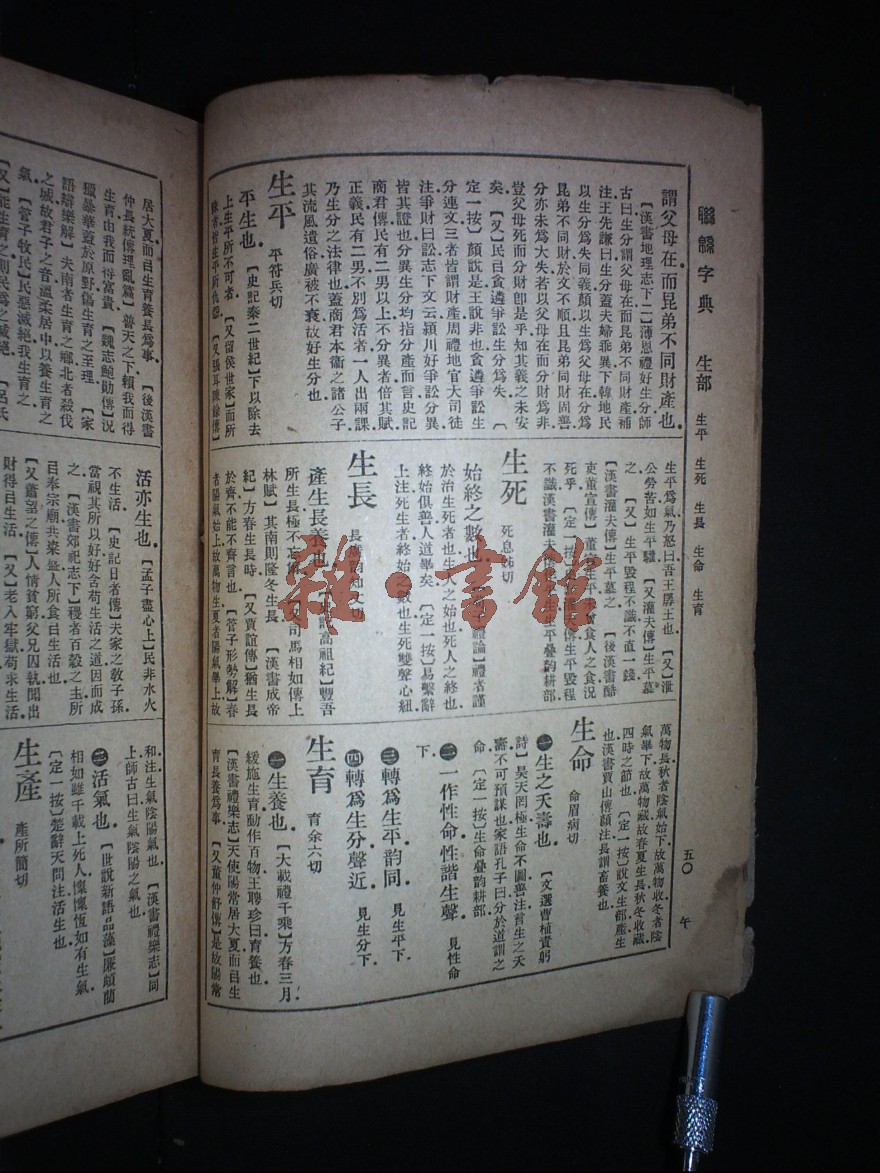 聯緜字典
生部
生平
生死
生長
生命
生育
五〇
午
謂父母在而昆弟不同財產也
【漢書地理志下二】薄恩禮好生分師
古曰生分謂父母在而昆弟不同財產補
注王先謙曰生分蓋夫婦乖異下韓地民
以生分爲失同義顏以生爲父母在分爲
昆弟不同財於文不順且昆弟同財固善
分亦未爲大失若以父母在而分財爲非
豈父母死而分財卽是乎知其義之未安
矣【又】民㠯貪遴爭訟生分爲失【
定一按】顏說是王說非也貪遴爭訟生
分連文三者皆謂財產周禮地官大司徒
注爭財曰訟志下文云潁川好爭訟分異
皆其證也分異生分均指分產而言史記
商君傳民有二男以上不分異者倍其賦
正義民有二男不別爲活者一人出兩課
乃生分之法律也蓋商君本衞之諸公子
其流風遺俗廣被不衰故好生分也
生平
平符兵切
平生也【史記秦二世紀】下以除去
上生平所不可者【又留侯世家】而所
生平爲氣乃怒曰吾王孱王也【又】泄
公勞苦如生平驩【又灌夫傳】生平慕
之【又】生平毀程不識不直一錢
【漢書灌夫傳】生平慕之【後漢書酷
吏董宣傳】董宣生平未曾食人之食況
死乎【定一按】
生死
死息姊切
始終之數也
禮論】禮者謹
於治生死者也生人之始也死人之終也
終始俱善人道畢矣【定一按】易繫辭
上注死生者終始之數也生死雙聲心紐
生長
產生長養也
高祖紀】豐吾
所生長極不忘
司馬相如傳上
林賦】其南則隆冬生長【漢書成帝
紀】方春生長時【又賈誼傳】猶生長
於齊不能不齊言也【管子形勢解】春
者陽氣始上故萬物生夏者陽氣畢上故
萬物長秋者陰氣始下故萬物收冬者陰
氣畢下故萬物藏故春夏生長秋冬收藏
四時之節也【定一按】說文生部產生
也漢書賈山傳顏注長謂畜養也
生命
命眉病切
㊀生之夭壽也【文選曹植責躬
詩】昊天罔極生命不圖善注言生之夭
壽不可預謀也家語孔子曰分於道謂之
命【定一按】生命疊韵耕部
㊁一作性命性諧生聲見性命
下
㊂轉爲生平韵同見生平下
㊃轉爲生分聲近見生分下
生育
育余六切
㊀生養也【大戴禮千乘】方春三月
緩施生育動作百物王聘珍曰育養也
【漢書禮樂志】天使陽常居大夏而㠯生
育長養爲事【又董仲舒傳】是故陽常
居大夏而㠯生育養長爲事【後漢書
仲長統傳理亂篇】普天之下賴我而得
生育由我而得富貴【魏志鮑勛傳】況
獵暴華蓋於原野傷生育之至理【家
語辯樂解】夫南者生育之鄉北者殺伐
之城故君子之音溫柔居中以養生育之
氣【管子牧民】民惡滅絕我生育之
【又】能生育之則民爲之滅絕
活亦生也【孟子盡心上】民非水火
不生活【史記日者傳】夫家之敎子孫
當視其所以好好含苟生活之道因而成
之【漢書郊祀志下】稷者百穀之主所
㠯奉宗廟共粢盛人所食㠯生活也
【又蕭望之傳】人情貧窮父兄囚執聞出
財得㠯生活【又】老入牢獄苟求生活
和注生氣陰陽氣也【漢書禮樂志】同
上師古曰生氣陰陽之氣也
㊁活氣也【世說新語品藻】廉頗藺
相如雖千載上死人懍懍恆如有生氣
【定一按】楚辭天問注活生也
生產
產所簡切
雜·書館